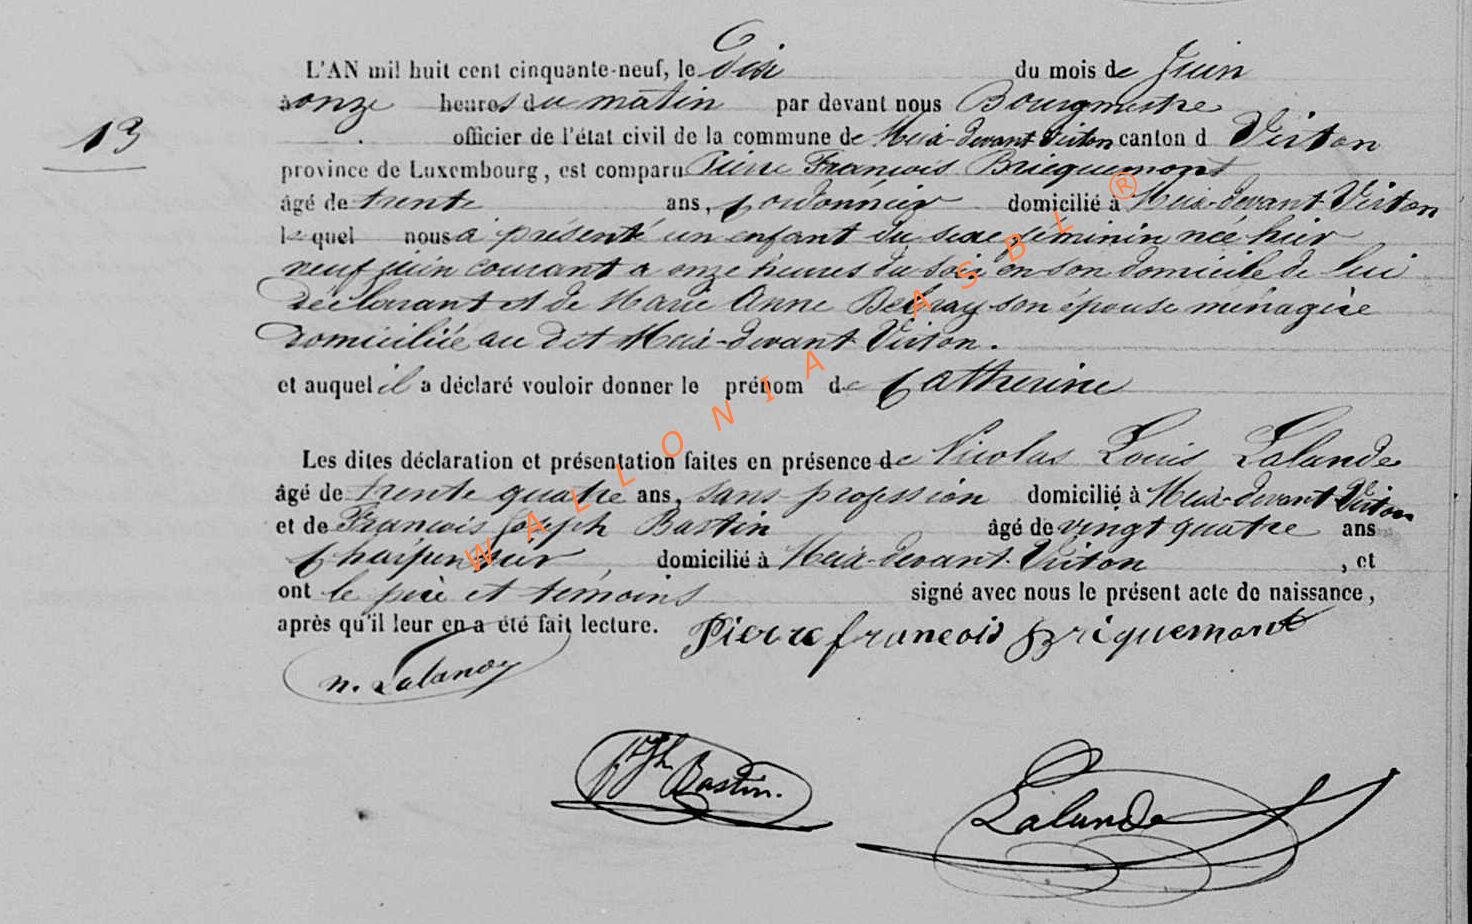 L'AN mil huit cent cinquante-neuf, le Dix du mois de Juin
à onze heures du matin par devant nous Bourgmestre
13
officier de l'état civil de la commune de Meix-devant Virton canton d Virton
province de Luxembourg, est comparu Pierre François Bricquemont
âgé de trente ans, Cordonnier domicilié à Meix-devant-Virton
le quel nous a présenté un enfant du sexe féminin née hier
neuf juin courant a onze heures du soir en son domicile de lui
déclarant et de Marie Anne son épouse ménagère
Domiciliée au dit Meix-devant-Virton.
et auquel il a déclaré vouloir donner le prénom de Catherine
Les dites déclaration et présentation faites en présence de Nicolas Louis Lalande
âgé de trente quatre ans, sans profession domicilié à Meix-devant Virton
et de François Joseph Bastin âgé de vingt quatre ans
Charpentier, domicilié à Meix-devant-Virton, et
ont le père et témoins signé avec nous le présent acte de naissance,
après qu'il leur en a été fait lecture. Pierre françois Briquemont
n. Lalande
Bastin.
Lalande
WALLONIA ASBL ®